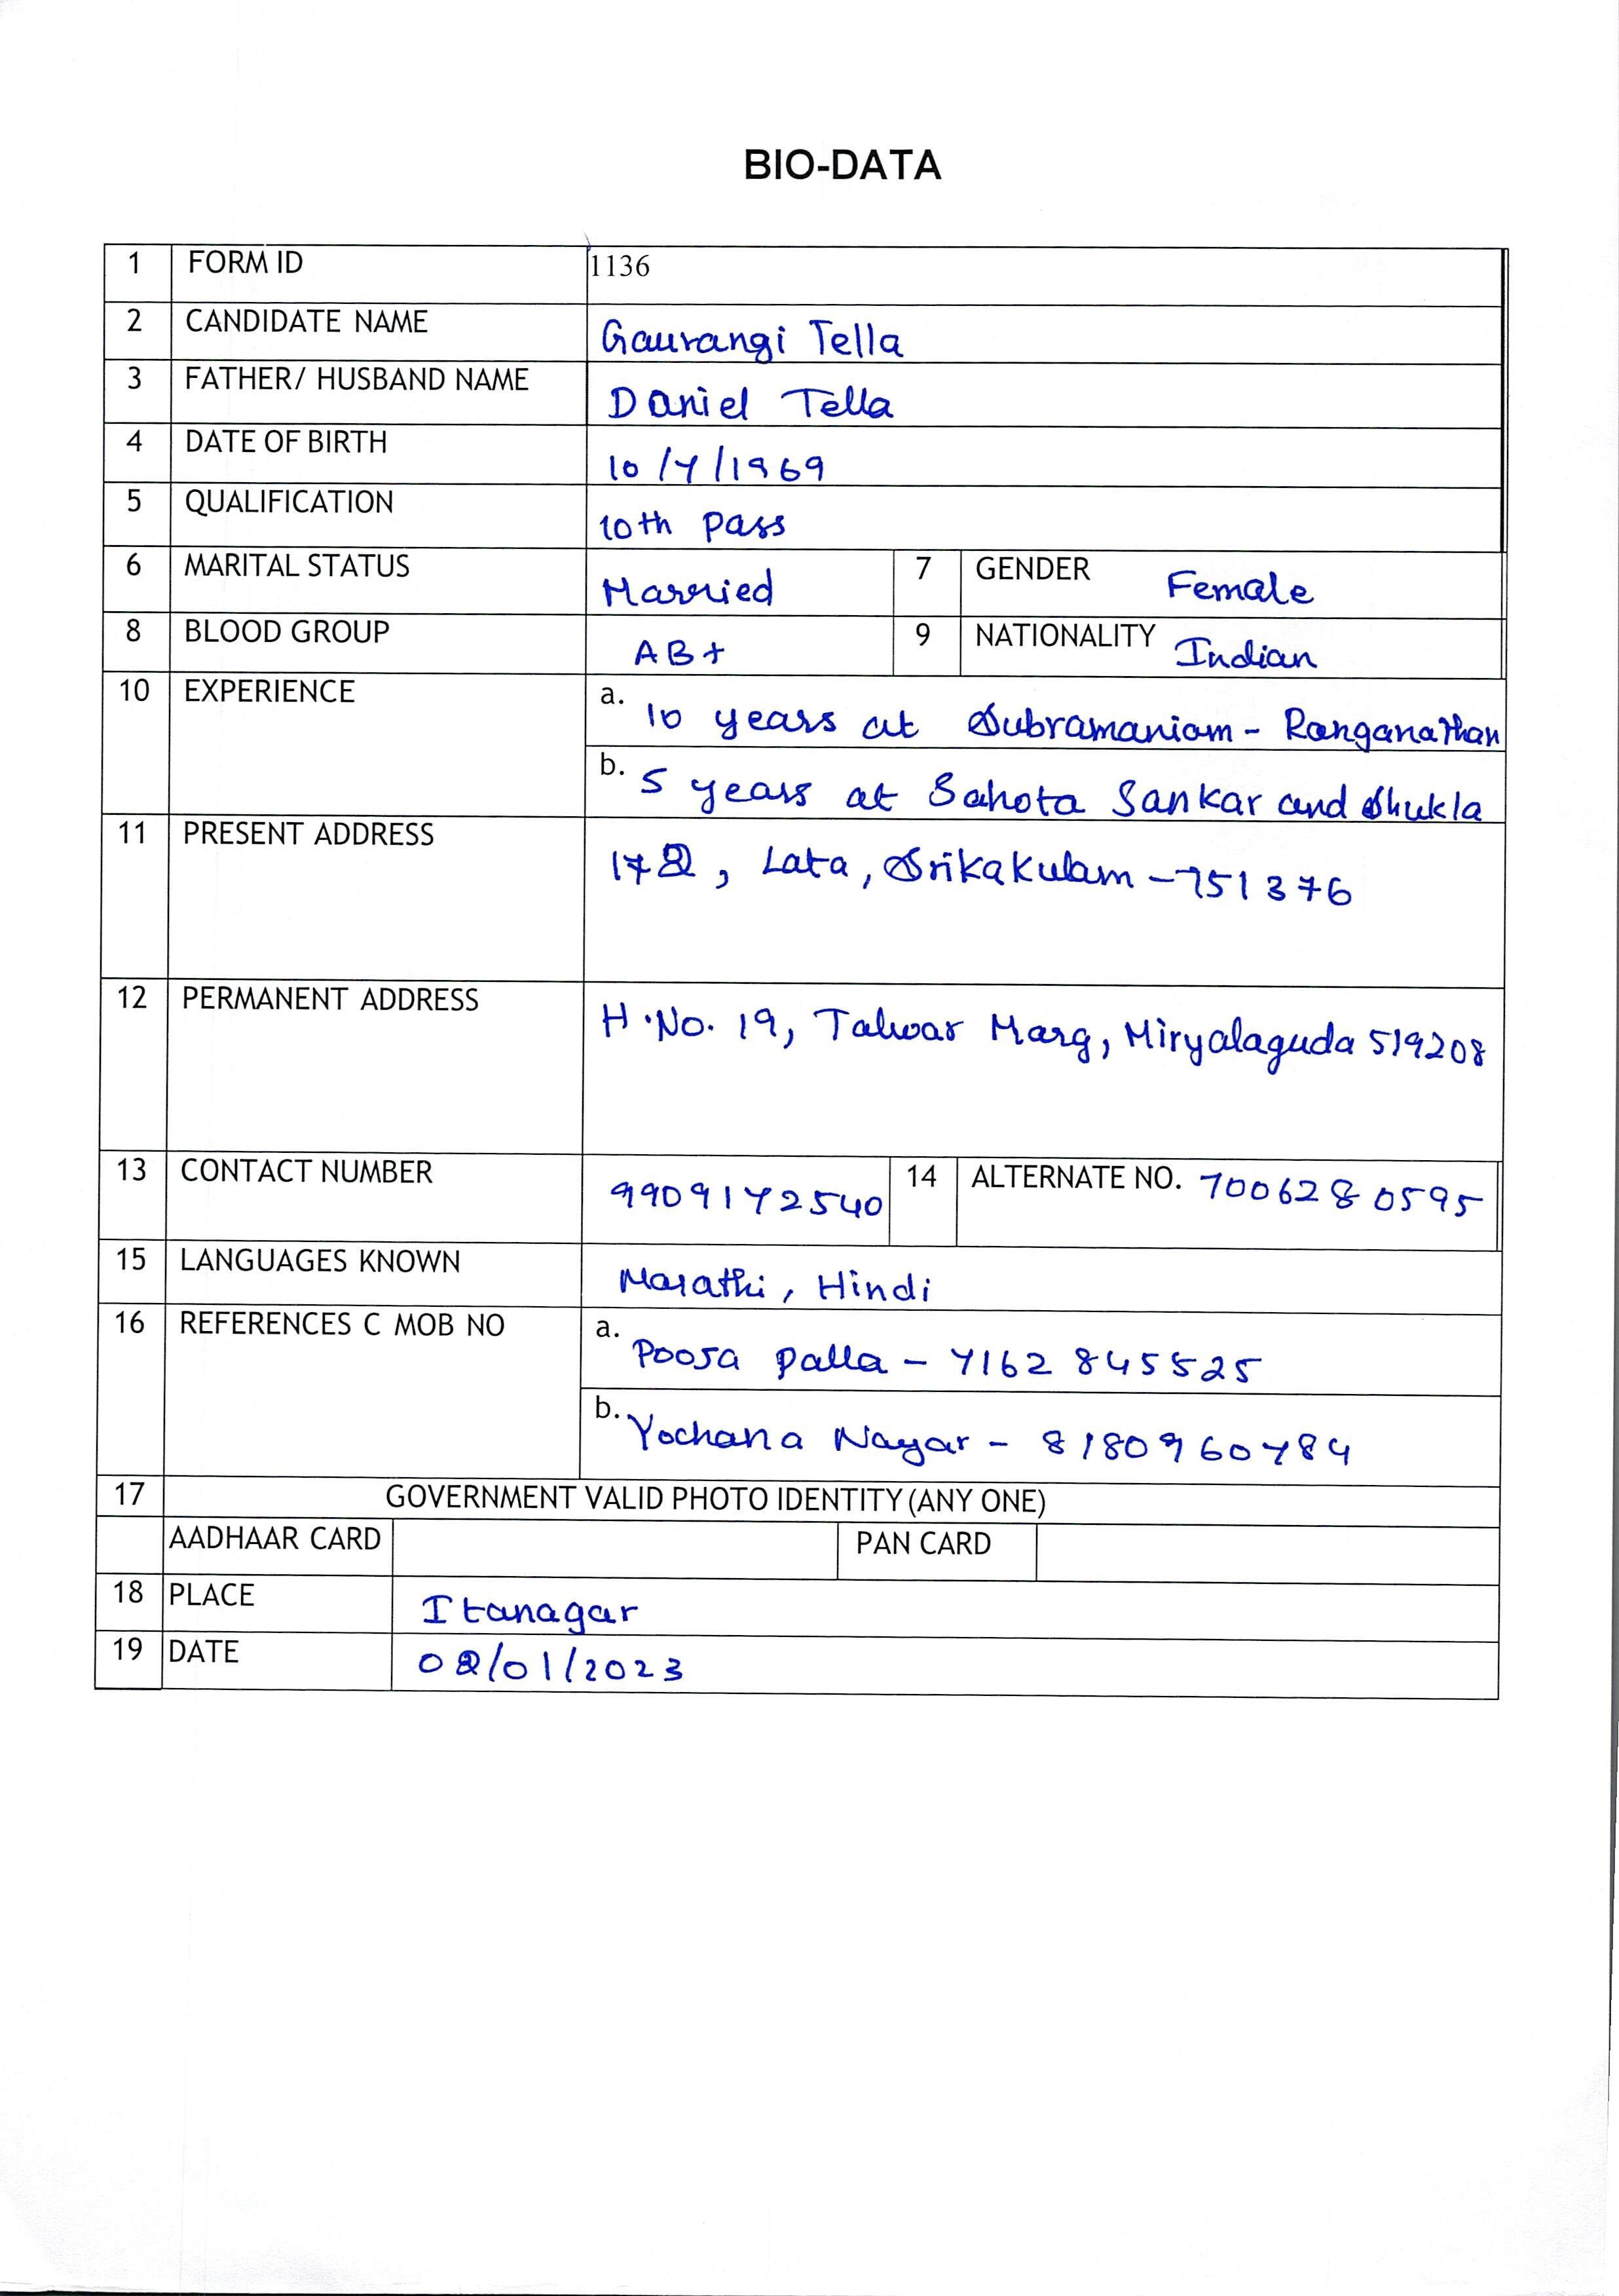 BIO-DATA
1 FORM ID 1136
2 CANDIDATE NAME Gaurangi Tella
3 FATHER/ HUSBAND NAME Daniel Tella
4 DATE OF BIRTH 10/7/1969
5 QUALIFICATION 10th Pass
6 MARITAL STATUS Married 7 GENDER Female
8 BLOOD GROUP AB+ 9 NATIONALITY Indian
10 EXPERIENCE a. 10 years at Subramaniam - Ranganathan
b. 5 years at Sahota Sankar and Shukla
11 PRESENT ADDRESS Lata, Srikakulam - 751376
12 PERMANENT ADDRESS H.No. 19, Talwar Marg, Miryalaguda 519208
13 CONTACT NUMBER 9909172540 14 ALTERNATE NO. 7006280595
15 LANGUAGES KNOWN Marathi, Hindi
16 REFERENCES C MOB NO a. Pooja Palla - 7162845525
b. Yochana Nayar - 8180960784
17 GOVERNMENT VALID PHOTO IDENTITY (ANY ONE)
AADHAAR CARD PAN CARD
18 PLACE Itanagar
19 DATE